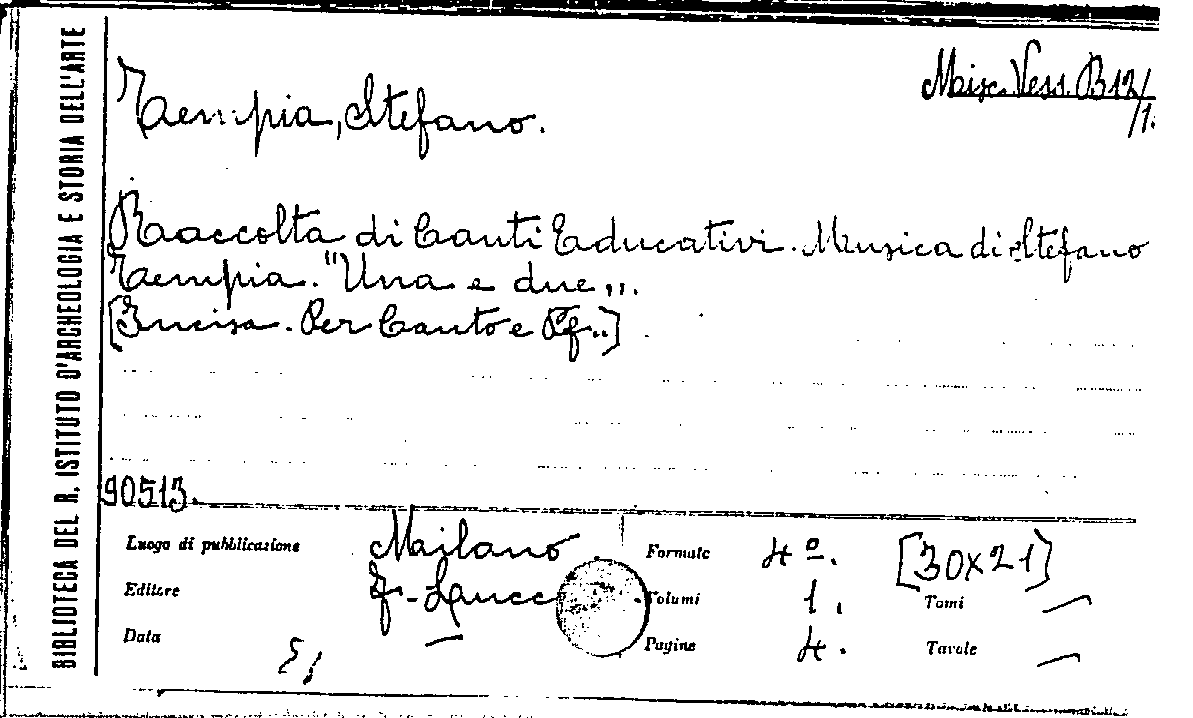 BIBLIOTECA DEL R. ISTITUTO D'ARCHEOLOGIA E STORIA DELL'ARTE
Misc. Vess. B 12/
/1.
Tempia, Stefano.
Raccolta di Canti Educativi. Musica di Stefano
Tempia. "Una e due".
[Incisa. Per Canto e Pf..]
90513.
Luogo di pubblicazione Milano. Formato 4º. [30x21]
Editore F. Lucc Volumi 1. Tomi —
Data — Pagine 4. Tavole —